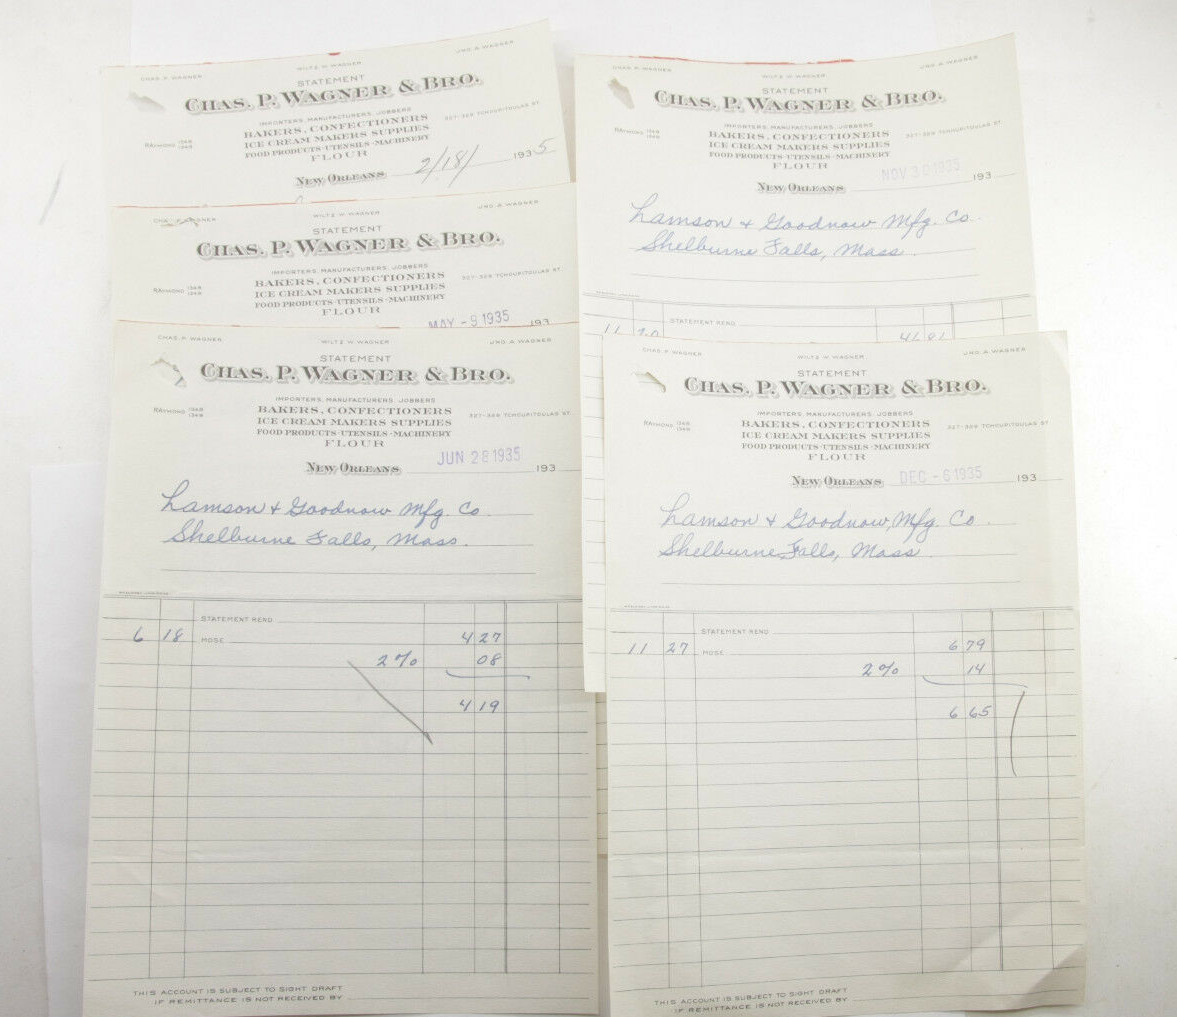 CHAS. P. WAGNER
WILTZ W. WAGNER
JNO. A. WAGNER
STATEMENT
CHAS. P. WAGNER & BRO.
IMPORTERS, MANUFACTURERS, JOBBERS
BAKERS, CONFECTIONERS
ICE CREAM MAKERS SUPPLIES
FOOD PRODUCTS-UTENSILS-MACHINERY
FLOUR
RAYMOND 1348
1349
327-329 TCHOUPITOULAS ST.
NEW ORLEANS 2/18/ 1935
CHAS. P. WAGNER
WILTZ W. WAGNER
JNO. A. WAGNER
STATEMENT
CHAS. P. WAGNER & BRO.
IMPORTERS, MANUFACTURERS, JOBBERS
BAKERS, CONFECTIONERS
ICE CREAM MAKERS SUPPLIES
FOOD PRODUCTS-UTENSILS-MACHINERY
FLOUR
RAYMOND 1348
1349
327-329 TCHOUPITOULAS ST.
MAY -9 1935 193
CHAS. P. WAGNER
WILTZ W. WAGNER
JNO. A. WAGNER
STATEMENT
CHAS. P. WAGNER & BRO.
IMPORTERS, MANUFACTURERS, JOBBERS
BAKERS, CONFECTIONERS
ICE CREAM MAKERS SUPPLIES
FOOD PRODUCTS-UTENSILS-MACHINERY
FLOUR
RAYMOND 1348
1349
327-329 TCHOUPITOULAS ST.
NEW ORLEANS JUN 28 1935 193
Lamson & Goodnow Mfg. Co.
Shelburne Falls, Mass.
STATEMENT REND.
6 18 MDSE. 4 27
2% 08
4 19
THIS ACCOUNT IS SUBJECT TO SIGHT DRAFT
IF REMITTANCE IS NOT RECEIVED BY
CHAS. P. WAGNER
WILTZ W. WAGNER
JNO. A. WAGNER
STATEMENT
CHAS. P. WAGNER & BRO.
IMPORTERS, MANUFACTURERS, JOBBERS
BAKERS, CONFECTIONERS
ICE CREAM MAKERS SUPPLIES
FOOD PRODUCTS-UTENSILS-MACHINERY
FLOUR
RAYMOND 1348
1349
327-329 TCHOUPITOULAS ST.
NEW ORLEANS NOV 30 1935 193
Lamson & Goodnow Mfg. Co.
Shelburne Falls, Mass.
STATEMENT REND.
11 20 41 81
CHAS. P. WAGNER
WILTZ W. WAGNER
JNO. A. WAGNER
STATEMENT
CHAS. P. WAGNER & BRO.
IMPORTERS, MANUFACTURERS, JOBBERS
BAKERS, CONFECTIONERS
ICE CREAM MAKERS SUPPLIES
FOOD PRODUCTS-UTENSILS-MACHINERY
FLOUR
RAYMOND 1348
1349
327-329 TCHOUPITOULAS ST.
NEW ORLEANS DEC -6 1935 193
Lamson & Goodnow Mfg. Co.
Shelburne Falls, Mass
STATEMENT REND.
11 27 MDSE. 6 79
2% 14
6 65
THIS ACCOUNT IS SUBJECT TO SIGHT DRAFT
IF REMITTANCE IS NOT RECEIVED BY